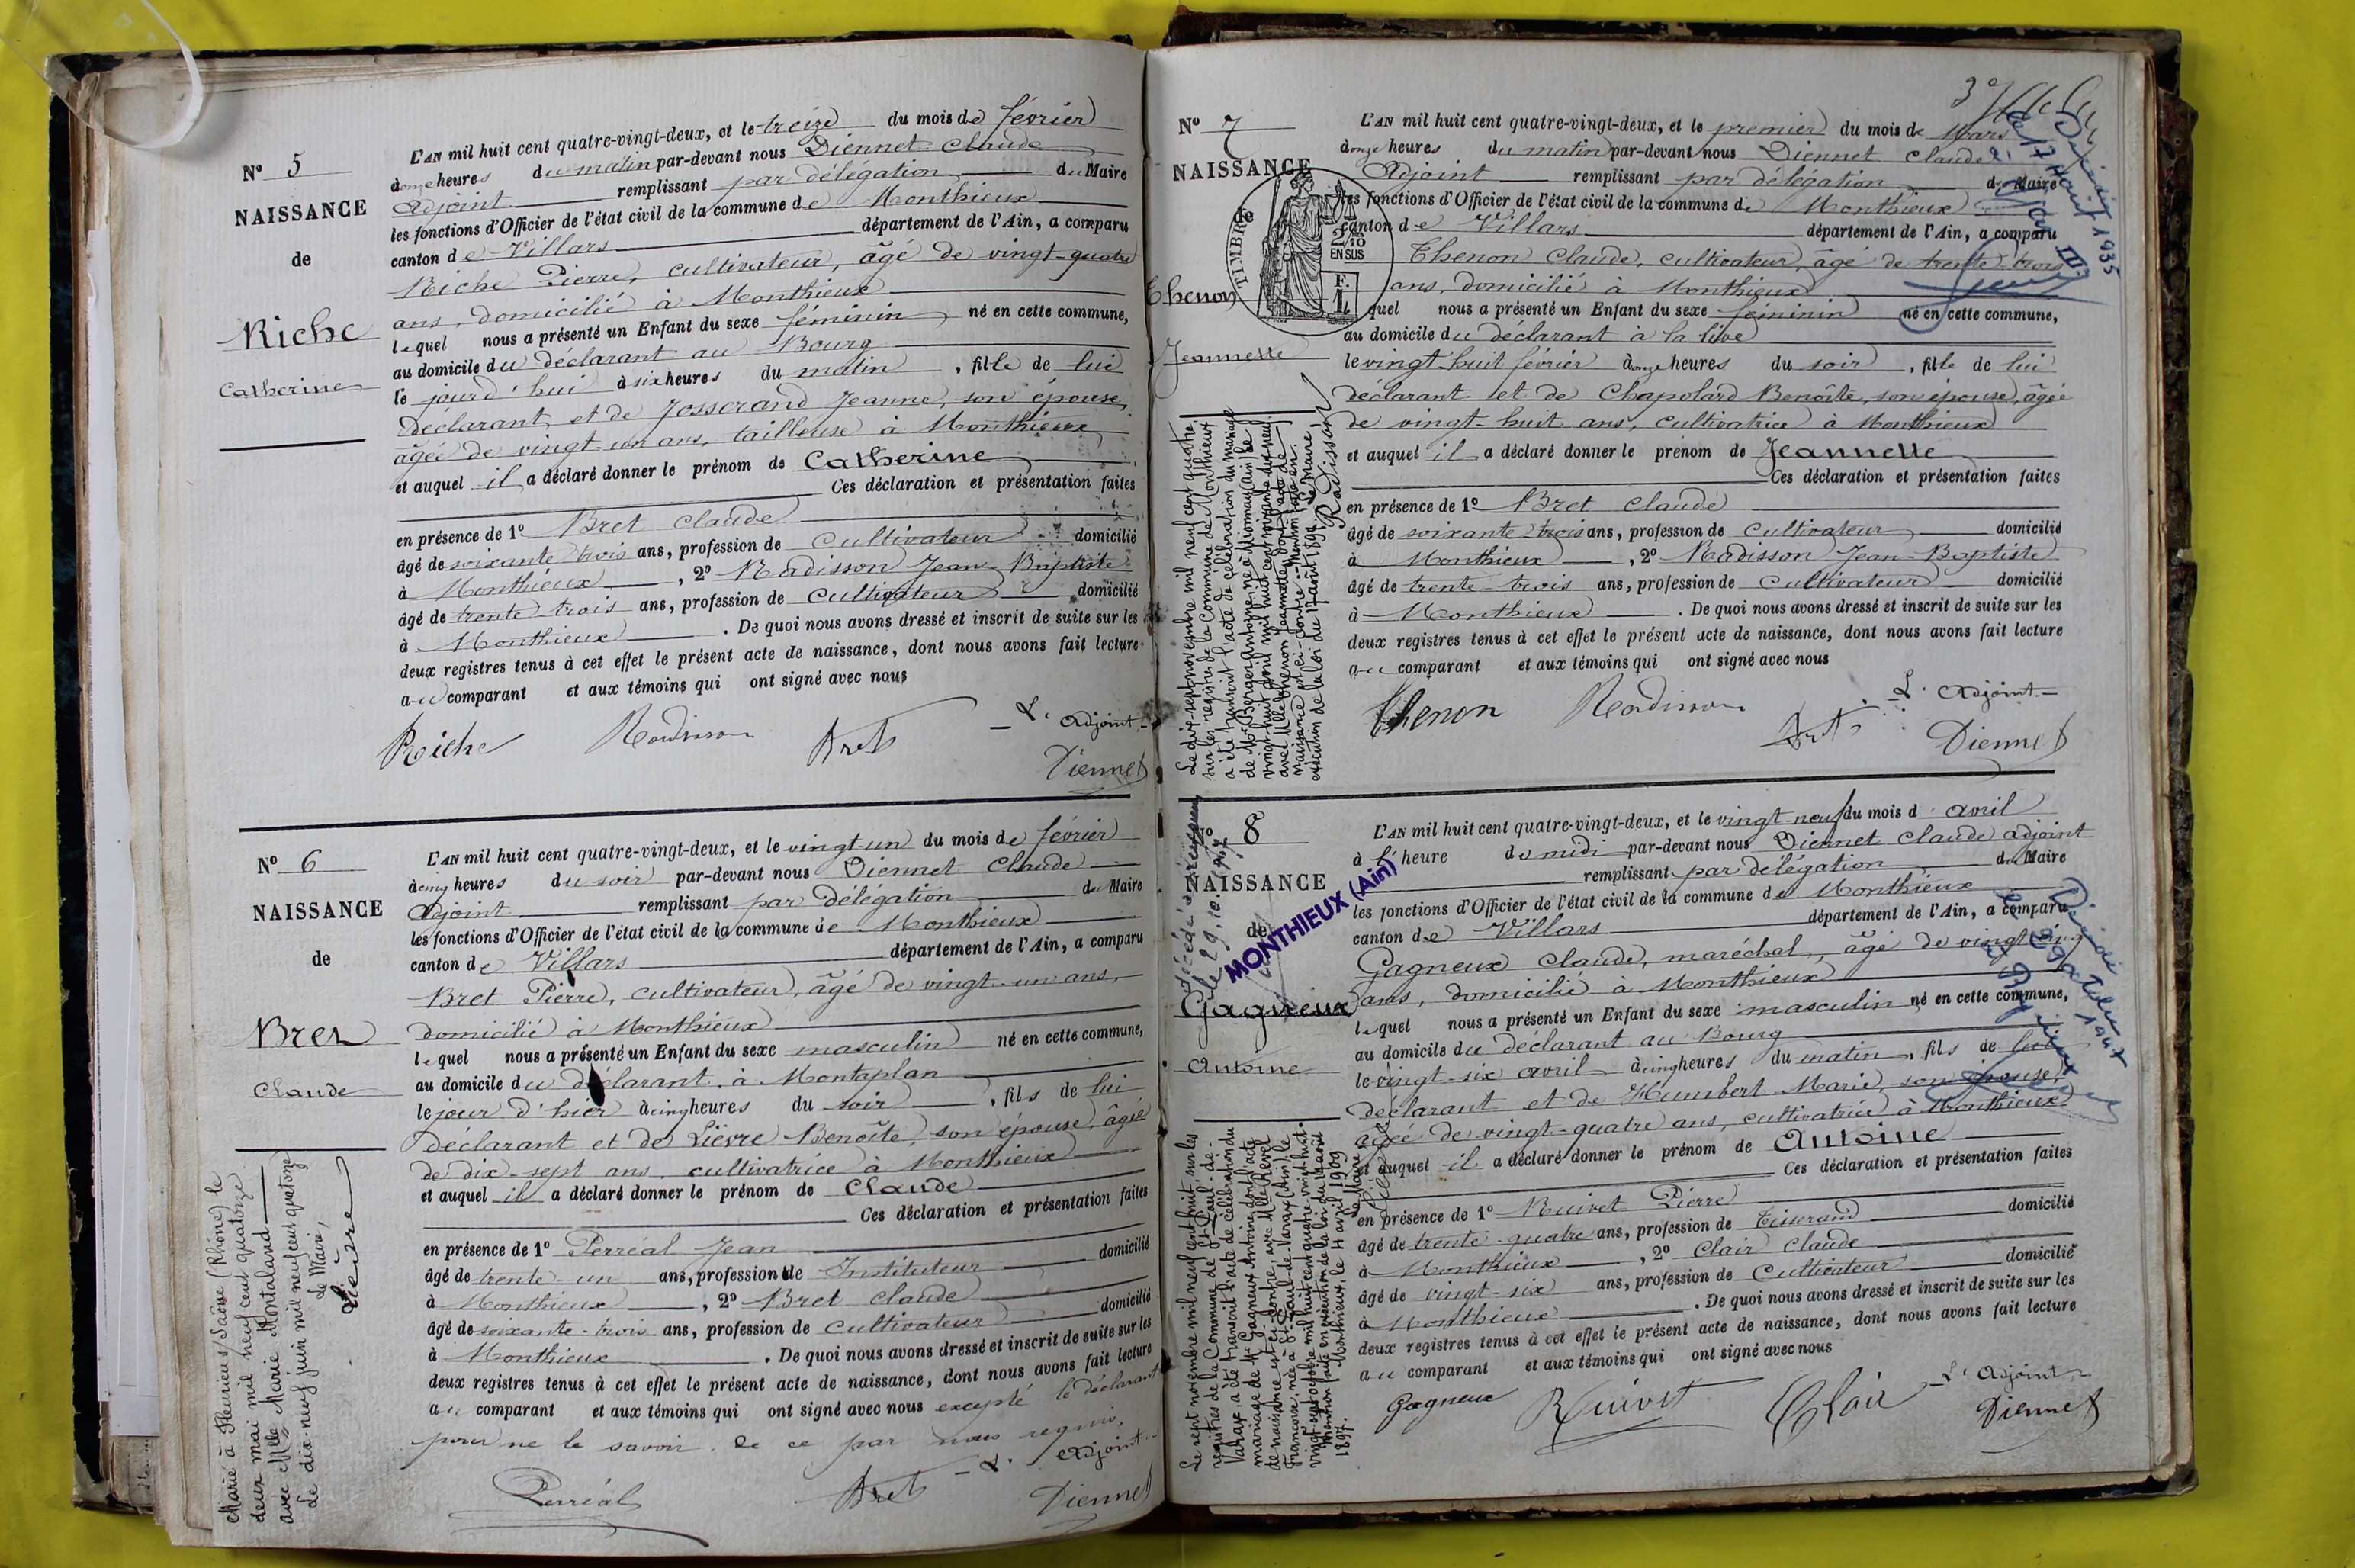 N° 5
NAISSANCE
de
Riche
Catherine
L'AN mil huit cent quatre-vingt-deux, et le treize du mois de février
à onze heures du matin par-devant nous Diennet Claude
Adjoint remplissant par délégation du Maire
les fonctions d'Officier de l'état civil de la commune de Monthieux
canton de Villars département de l'Ain, a comparu
Riche Pierre, cultivateur, âgé de vingt-quatre
ans, domicilié à Monthieux
lequel nous a présenté un Enfant du sexe féminin né en cette commune,
au domicile du déclarant au Bourg
le jourd'hui à six heures du matin, fille de lui
déclarant et de Josserand Jeanne, son épouse,
âgée de vingt-un ans, tailleuse à Monthieux
et auquel il a déclaré donner le prénom de Catherine
Ces déclaration et présentation faites
en présence de 1° Bret Claude
âgé de soixante trois ans, profession de Cultivateur domicilié
à Monthieux, 2° Radisson Jean-Baptiste
âgé de trente trois ans, profession de Cultivateur domicilié
à Monthieux. De quoi nous avons dressé et inscrit de suite sur les
deux registres tenus à cet effet le présent acte de naissance, dont nous avons fait lecture
au comparant et aux témoins qui ont signé avec nous
L'Adjoint
Riche Radisson Bret Diennet
N° 6
NAISSANCE
de
Bret
Claude
L'AN mil huit cent quatre-vingt-deux, et le vingt-un du mois de février
à cinq heures du soir par-devant nous Diennet Claude
Adjoint remplissant par délégation du Maire
les fonctions d'Officier de l'état civil de la commune de Monthieux
canton de Villars département de l'Ain, a comparu
Bret Pierre, cultivateur, âgé de vingt-un ans,
domicilié à Monthieux
lequel nous a présenté un Enfant du sexe masculin né en cette commune,
au domicile du déclarant à Montaplan
le jour d'hier à cinq heures du soir, fils de lui
déclarant et de Lièvre Benoîte, son épouse, âgée
de dix-sept ans, cultivatrice à Monthieux
et auquel il a déclaré donner le prénom de Claude
Ces déclaration et présentation faites
en présence de 1° Perréal Jean
âgé de trente-un ans, profession de Instituteur domicilié
à Monthieux, 2° Bret Claude
âgé de soixante-trois ans, profession de Cultivateur domicilié
à Monthieux. De quoi nous avons dressé et inscrit de suite sur les
deux registres tenus à cet effet le présent acte de naissance, dont nous avons fait lecture
au comparant et aux témoins qui ont signé avec nous excepté le déclarant
pour ne le savoir, de ce par nous requis.
L'Adjoint
Perréal Bret Diennet
Marié à Fleurieu s/ Saône (Rhône) le
deux mai mil neuf cent quatorze
avec Mlle Marie Montaland
Le dix-neuf juin mil neuf cent quatorze
Le Maire,
Lièvre
N° 7
NAISSANCE
de
Thenon
Jeannette
TIMBRE
2/10
EN SUS
L'AN mil huit cent quatre-vingt-deux, et le premier du mois de Mars
à onze heures du matin par-devant nous Diennet Claude
Adjoint remplissant par délégation du Maire
les fonctions d'Officier de l'état civil de la commune de Monthieux
canton de Villars département de l'Ain, a comparu
Thenon Claude, cultivateur, âgé de trente-trois
ans, domicilié à Monthieux
lequel nous a présenté un Enfant du sexe féminin né en cette commune,
au domicile du déclarant à la live
le vingt-huit février à onze heures du soir, fille de lui
déclarant et de Chapolard Benoîte, son épouse, âgée
de vingt-huit ans, cultivatrice à Monthieux
et auquel il a déclaré donner le prénom de Jeannette
Ces déclaration et présentation faites
en présence de 1° Bret Claude
âgé de soixante-trois ans, profession de Cultivateur domicilié
à Monthieux, 2° Radisson Jean-Baptiste
âgé de trente-trois ans, profession de Cultivateur domicilié
à Monthieux. De quoi nous avons dressé et inscrit de suite sur les
deux registres tenus à cet effet le présent acte de naissance, dont nous avons fait lecture
au comparant et aux témoins qui ont signé avec nous
L'Adjoint
Thenon Radisson Bret Diennet
Le dix-sept novembre mil neuf cent quatre
sur les registres de la Commune de Monthieux
a été transcrit l'acte de célébration du mariage
de Mr Berger Antoine, né à Mionnay (Ain) le
vingt-huit avril mil huit cent soixante dix-neuf
avec Mlle Thenon Jeannette, dont l'acte de
naissance est ci-contre. Mention faite en
exécution de la loi du 17 août 1897. Le Maire,
Radisson
Décédée
le 17 Août 1935
N° 8
NAISSANCE
de
Gagneux
Antoine
MONTHIEUX (Ain)
le 29.10.1947
L'AN mil huit cent quatre-vingt-deux, et le vingt-neuf du mois d'avril
à 1 heure du midi par-devant nous Diennet Claude adjoint
remplissant par délégation du Maire
les fonctions d'Officier de l'état civil de la commune de Monthieux
canton de Villars département de l'Ain, a comparu
Gagneux Claude, maréchal, âgé de vingt-cinq
ans, domicilié à Monthieux
lequel nous a présenté un Enfant du sexe masculin né en cette commune,
au domicile du déclarant au Bourg
le vingt-six avril à cinq heures du matin, fils de lui
déclarant et de Humbert Marie, son épouse,
âgée de vingt-quatre ans, cultivatrice à Monthieux
et auquel il a déclaré donner le prénom de Antoine
Ces déclaration et présentation faites
en présence de 1° Ruivet Pierre domicilié
âgé de trente-quatre ans, profession de Tisserand
à Monthieux, 2° Clair Claude domicilié
âgé de vingt-six ans, profession de Cultivateur
à Monthieux. De quoi nous avons dressé et inscrit de suite sur les
deux registres tenus à cet effet le présent acte de naissance, dont nous avons fait lecture
au comparant et aux témoins qui ont signé avec nous
L'Adjoint
Gagneux Ruivet Clair Diennet
Le sept novembre mil neuf cent huit sur les
registres de la Commune de St-Paul-de-
Varax, a été transcrit l'acte de célébration du
mariage de Mr Gagneux Antoine, dont l'acte
de naissance est ci-contre, avec Mlle Chevel
Françoise, née à St-Paul-de-Varax (Ain) le
vingt-sept octobre mil huit cent quatre-vingt-huit.
Mention faite en exécution de la loi du 17 août
1897. Monthieux, le 4 avril 1909
Le Maire
Décédé
29 octobre
1947